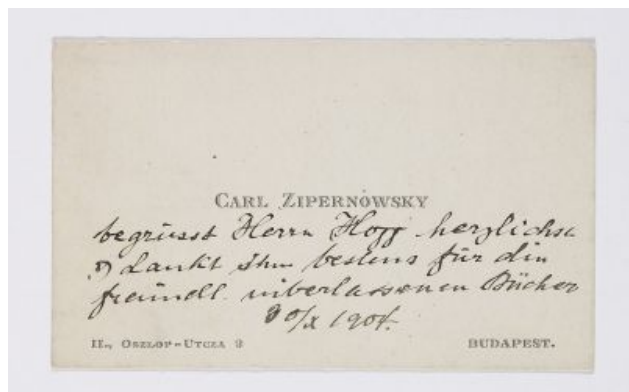 CARL ZIPERNOWSKY
begrüsst Herrn Hogg herzlichst
dankt Ihm bestens für die
freundl. überlassenen Bücher
30/X 1904.
II., OSZLOP-UTCZA 9 BUDAPEST.